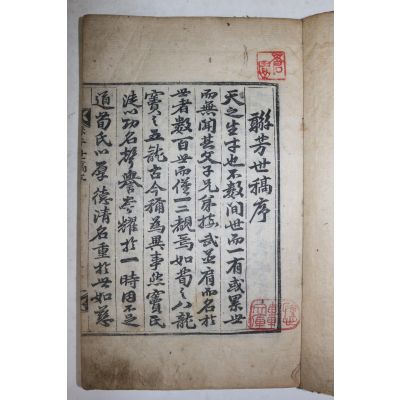 聯芳世稿序
天之生才也不數間世而一有或累世
而無聞其父子兄弟接武並肩而名於
世者數百世而僅一二覩焉如荀之八龍
竇之五龍古今稱為異事然竇氏
徒以功名聲譽榮耀於一時固不足
道荀氏以厚德清名重於世如慈